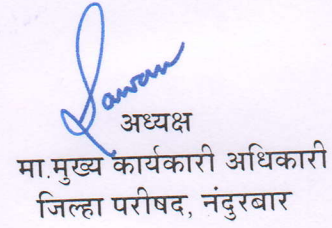 अध्यक्ष
मा.मुख्य कार्यकारी अधिकारी
जिल्हा परीषद, नंदुरबार